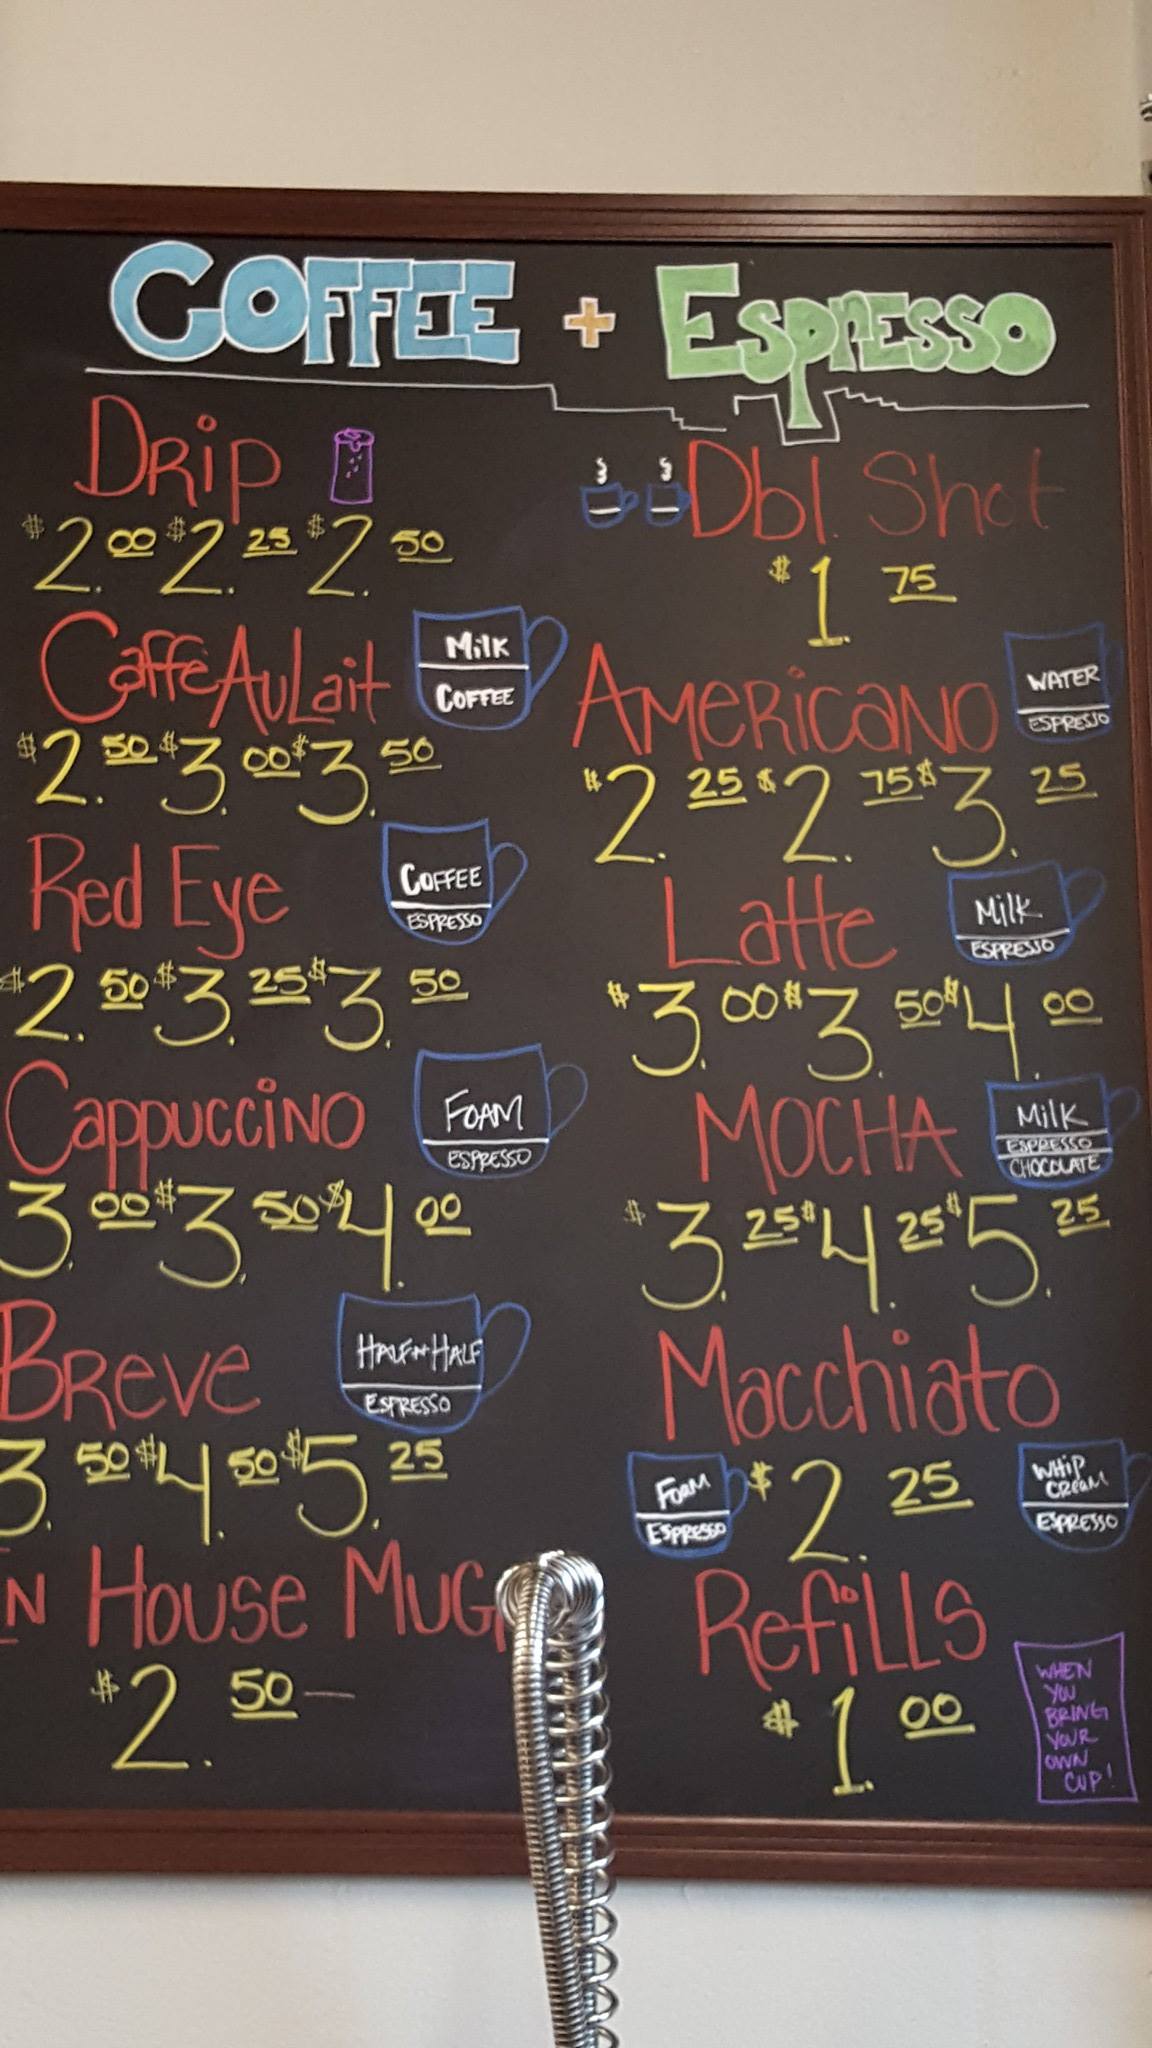 COFFEE + Espresso
Drip
$2.00 $2.25 $2.50
Caffe Au Lait
Milk
COFFEE
$2.50 $3.00 $3.50
Red Eye
COFFEE
ESPRESSO
$2.50 $3.25 $3.50
Cappuccino
FOAM
ESPRESSO
3.00 $3.50 $4.00
Breve
HALF N HALF
ESPRESSO
3.50 $4.50 $5.25
In House Mug
$2.50
Dbl. Shot
$1.75
Americano
WATER
ESPRESSO
$2.25 $2.75 $3.25
Latte
Milk
ESPRESSO
$3.00 $3.50 $4.00
MOCHA
Milk
ESPRESSO
CHOCOLATE
$3.25 $4.25 $5.25
Macchiato
FOAM
ESPRESSO
$2.25
WHIP
CREAM
ESPRESSO
Refills
$1.00
WHEN
YOU
BRING
YOUR
OWN
CUP!